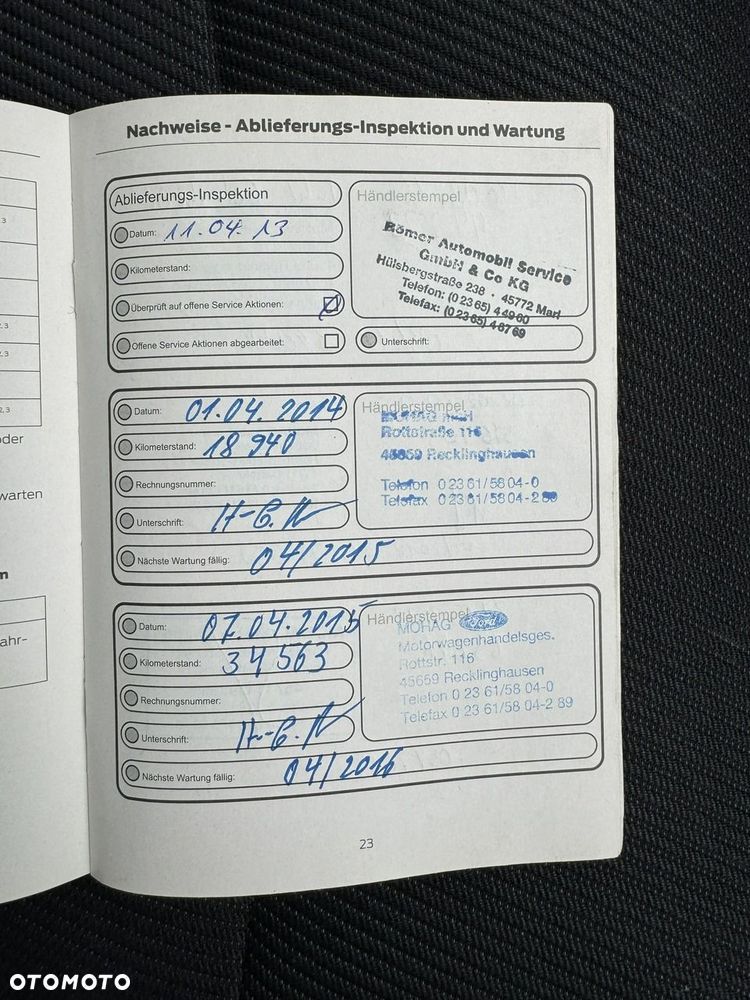 Nachweise - Ablieferungs-Inspektion und Wartung
Ablieferungs-Inspektion
Datum: 11.04.13
Kilometerstand:
Überprüft auf offene Service Aktionen:
Offene Service Aktionen abgearbeitet:
Händlerstempel
Römer Automobil Service
GmbH & Co KG
Hülsbergstraße 238 · 45772 Marl
Telefon: (0 23 65) 4 49 60
Telefax: (0 23 65) 4 67 69
Unterschrift:
Datum: 01.04.2014
Kilometerstand: 18 940
Rechnungsnummer:
Unterschrift:
Nächste Wartung fällig: 04/2015
Händlerstempel
Rottstraße 116
45659 Recklinghausen
Telefon 0 23 61/58 04-0
Telefax 0 23 61/58 04-2 89
Datum: 07.04.2015
Kilometerstand: 34 563
Rechnungsnummer:
Unterschrift:
Nächste Wartung fällig: 04/2016
Händlerstempel
MOHAG Ford
Motorwagenhandelsges.
Rottstr. 116
45659 Recklinghausen
Telefon 0 23 61/58 04-0
Telefax 0 23 61/58 04-2 89
23
warten
OTOMOTO